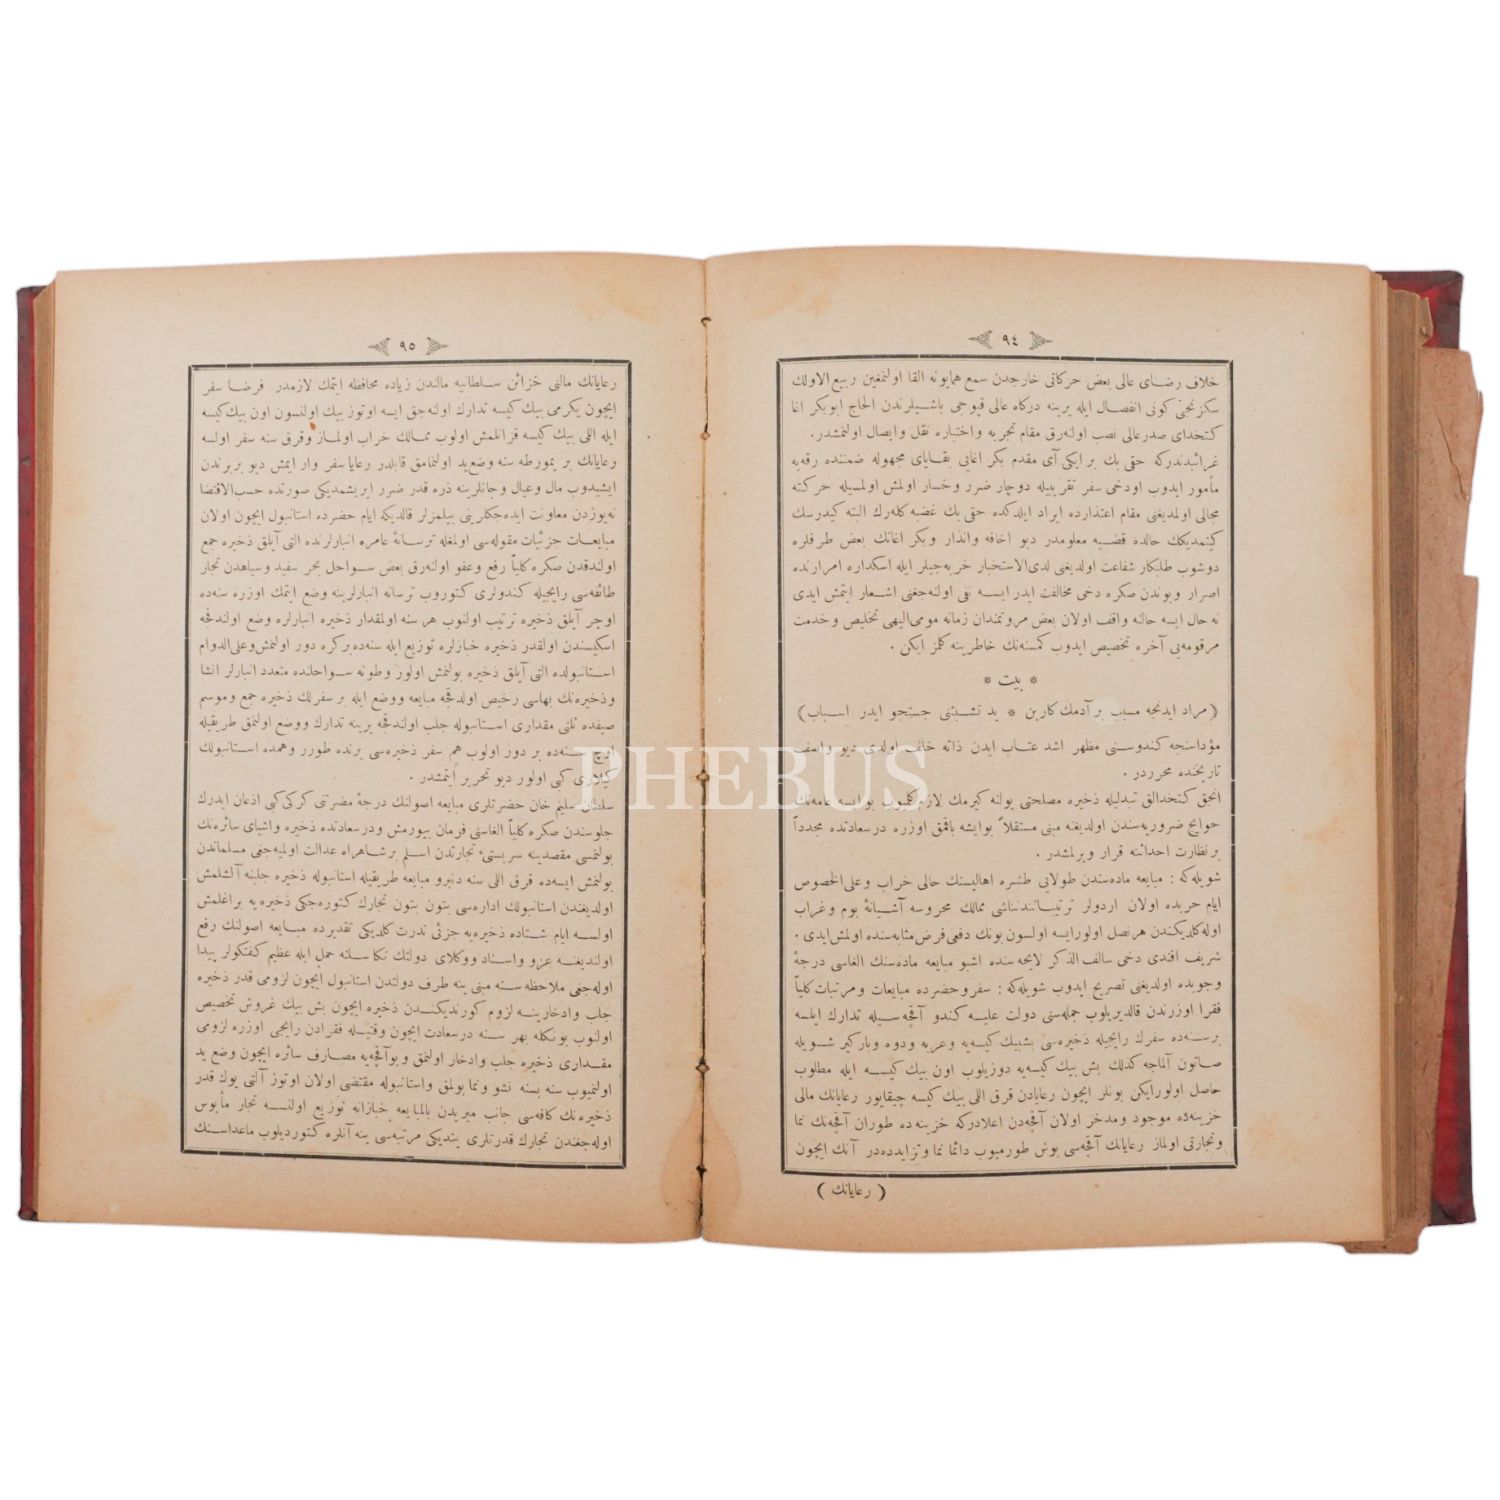 ٩٤
خلاف رضای عالی بعض حرکاتی خارجدن سمع همایونه القا اولنمغین ربیع الاولك
سکزنجی کونی انفصال ایله یرینه درکاه عالی قپوجی باشیلرندن الحاج ابوبکر اغا
کتخدای صدرعالی نصب اوله‌رق مقام تجربه واختباره نقل وایصال اولنمشدر .
غرائبدندرکه حقی بك بر ایکی آی مقدم بکر اغایی بقایای مجهوله ضمننده رقه‌یه
مأمور ایدوب اودخی سفر تقریبیله دوچار ضرر وخسار اولمش اولمسیله حرکته
مجالی اولمدیغنی مقام اعتذارده ایراد ایلدکده حقی بك غضبه کله‌رك البته کیدرسك
کیتمدیکك حالده قضیه معلومدر دیو اخافه وانذار وبکر اغانك بعض طرفلره
دوشوب طلبکار شفاعت اولدیغنی لدی‌الاستخبار خربه‌جیلر ایله اسکداره امرارنده
اصرار وبوندن صکره دخی مخالفت ایدر ایسه نفی اولنه‌جغنی اشعار ایتمش ایدی
نه حال ایسه حالنه واقف اولان بعض مروتمندان زمانه مومی‌الیهی تخلیص وخدمت
مرقومه‌یی آخره تخصیص ایدوب کمسنه‌نك خاطرینه کلمز ایکن .
* بیت *
( مراد ایدنجه مسبب بر آدمك کارین * ید تشبثنی جستجو ایدر اسباب )
مؤداسنجه کندوسنی مظهر اشد عتاب ایدن ذاته خلف اولدی دیو واصف
تاریخنده محرردر .
انجق کتخدالق تبدیلیله ذخیره مصلحتی یولنه کیرمك لازم کلمیوب بو ایسه عامه‌نك
حوایج ضروریه‌سندن اولدیغنه مبنی مستقلاً بوایشه باقمق اوزره درسعادتده مجدداً
بر نظارت احداثنه قرار ویرلمشدر .
شویله‌که : مبایعه ماده‌سندن طولایی طشره اهالیسنك حالی خراب وعلی‌الخصوص
ایام حربده اولان اردولر ترتیباتندنناشی ممالك محروسه آشیانهٔ بوم وغراب
اوله‌کلدیکندن هرنصل اولورایسه اولسون بونك دفعی فرض مثابه‌سنده اولمش‌ایدی .
شریف افندی دخی سالف‌الذکر لایحه‌سنده اشبو مبایعه ماده‌سنك الغاسی درجهٔ
وجوبده اولدیغنی تصریح ایدوب شویله‌که : سفر وحضرده مبایعات ومرتبات کلیاً
فقرا اوزرندن قالدیریلوب جمله‌سنی دولت علیه کندو آقچه سیله تدارك ایلسه
بر سنه‌ده سفرك رایجیله ذخیره‌سی بشبیك کیسه‌یه وعربه ودوه وبارکیر شویله
صاتون آلماجه کذلك بش بیك کیسه‌یه دوزیلوب اون بیك کیسه ایله مطلوب
حاصل اولورایکن بونلر ایچون رعایادن قرق اللی بیك کیسه چیقاییور رعایانك مالی
خزینه‌ده موجود ومدخر اولان آقچه‌دن اعلادرکه خزینه ده طوران آقچه‌نك نما
وتجارتی اولماز رعایانك آقچه‌سی بوش طورمیوب دائما نما وتزایدده‌در آنك ایچون
( رعایانك )
٩٥
رعایانك مالنی خزائن سلطانیه مالندن زیاده محافظه ایتمك لازمدر فرضا سفر
ایچون یکرمی بیك کیسه تدارك اولنه‌جق ایسه اوتوز بیك اولنسون اون بیك کیسه
ایله اللی بیك کیسه قزانلمش اولوب ممالك خراب اولماز وقرق سنه سفر اولسه
رعایانك بر یمورطه سنه وضع‌ید اولنمامق قابلدر رعایا سفر وار ایمش دیو بربرندن
ایشیدوب مال وعیال وجانلرینه ذره قدر ضرر ایریشمدیکی صورتده حسب‌الاقتضا
نه‌یوزدن معاونت ایده‌جکلرینی بیلمزلر قالدیکه ایام حضرده استانبول ایچون اولان
مبایعات جزئیات مقوله‌سی اولمغله ترسانهٔ عامره انبارلرنده التی آیلق ذخیره جمع
اولندقدن صکره کلیاً رفع وعفو اولنه‌رق بعض سواحل بحر سفید وسیاهدن تجار
طائفه‌سی رایجیله کندولری کتوروب ترسانه انبارلرینه وضع ایتمك اوزره سنه‌ده
اوچر آیلق ذخیره ترتیب اولنوب هر سنه اولمقدار ذخیره انبارلره وضع اولندقجه
اسکیسندن اولقدر ذخیره خبازلره توزیع ایله سنه‌ده برکره دور اولنمش وعلی‌الدوام
استانبولده التی آیلق ذخیره بولنمش اولور وطونه سواحلنده متعدد انبارلر انشا
وذخیره‌نك بهاسی رخیص اولدقجه مبایعه ووضع ایله بر سفرلك ذخیره جمع وموسم
صیفده ثلثی مقداری استانبوله جلب اولندقجه یرینه تدارك ووضع اولنمق طریقیله
اوچ سنه‌ده بر دور اولوب هم سفر ذخیره‌سی یرنده طورر وهمده استانبولك
کیلاری کبی اولور دیو تحریر ایتمشدر .
سلطان سلیم خان حضرتلری مبایعه اصولنك درجهٔ مضرتنی کرکی کبی اذعان ایدرك
جلوسندن صکره کلیاً الغاسنی فرمان بیورمش ودرسعادتده ذخیره واشیای سائره‌نك
بولنمسی مقصدینه سربستیء تجارتدن اسلم بر شاهراه عدالت اولمیه‌جغی مسلماتدن
بولنمش ایسه‌ده قرق اللی سنه دنبرو مبایعه طریقیله استانبوله ذخیره جلبنه آلشلمش
اولدیغندن استانبولك اداره‌سی بتون بتون تجارك کتوره‌جکی ذخیره یه براغلمش
اولسه ایام شتاده ذخیره‌یه جزئی ندرت کلدیکی تقدیرده مبایعه اصولنك رفع
اولندیغنه عزو واسناد ووکلای دولتك تکاسلنه حمل ایله عظیم کفتکولر پیدا
اوله‌جغی ملاحظه سنه مبنی ینه طرف دولتدن استانبول ایچون لزومی قدر ذخیره
جلب وادخارینه لزوم کورندیکندن ذخیره ایچون بش بیك غروش تخصیص
اولنوب بونکله بهر سنه درسعادت ایچون وقتیله فقرادن رایجی اوزره لزومی
مقداری ذخیره جلب وادخار اولنمق وبوآقچه‌یه مصارف سائره ایچون وضع ید
اولنمیوب سنه بسنه نشو ونما بولمق واستانبوله مقتضی اولان اوتوز آلتی یوك قدر
ذخیره‌نك کافه‌سی جانب میریدن بالمبایعه خبازانه توزیع اولنسه تجار مأیوس
اوله‌جغندن تجارك قدرتلری یتدیکی مرتبه‌سی ینه آنلره کتوردیلوب ماعداسنك
PHEBUS